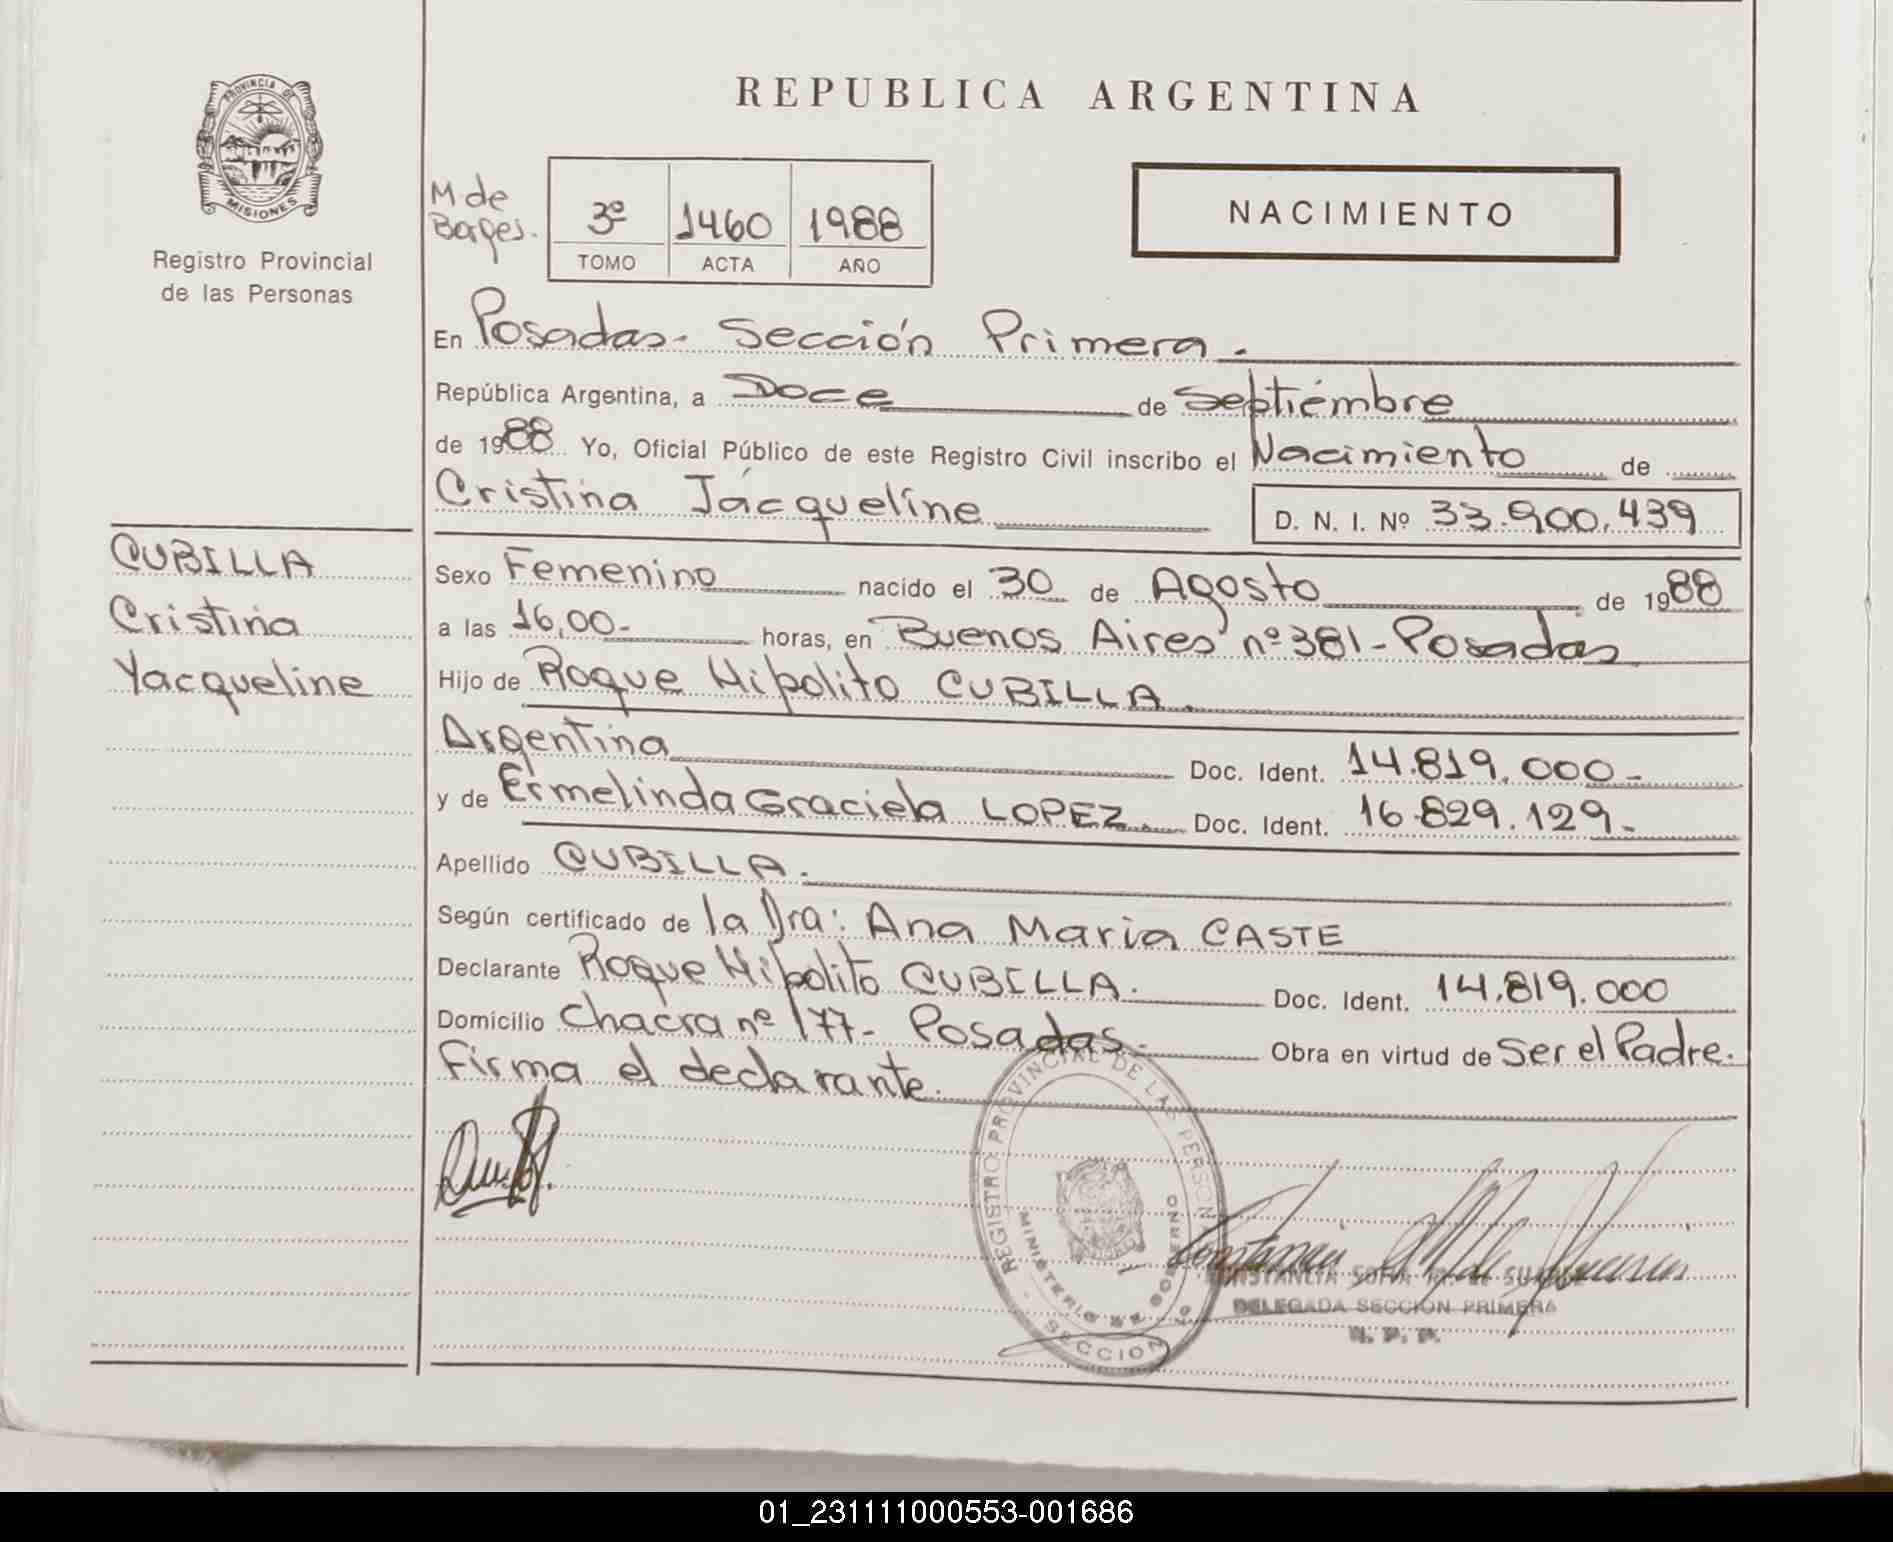 PROVINCIA DE
MISIONES
Registro Provincial
de las Personas
REPUBLICA ARGENTINA
M de
Borges.
3º 1460 1988
TOMO ACTA AÑO
NACIMIENTO
En Posadas. Sección Primera.
República Argentina, a Doce de Septiembre
de 1988 Yo, Oficial Público de este Registro Civil inscribo el Nacimiento de
Cristina Jacqueline
D. N. I. Nº 33.900.439
CUBILLA
Cristina
Yacqueline
Sexo Femenino nacido el 30 de Agosto de 1988
a las 16,00- horas, en Buenos Aires nº 381-Posadas
Hijo de Roque Hipolito CUBILLA.
Argentina Doc. Ident. 14.819.000-
y de Ermelinda Graciela LOPEZ. Doc. Ident. 16.829.129-
Apellido CUBILLA.
Según certificado de la Dra: Ana Maria CASTE
Declarante Roque Hipolito CUBILLA. Doc. Ident. 14.819.000
Domicilio Chacra nº 177- Posadas. Obra en virtud de Ser el Padre.
Firma el declarante.
REGISTRO PROVINCIAL DE LAS PERSONAS
MINISTERIO DE GOBIERNO
SECCION
CONSTANCIA SOFIA
DELEGADA SECCION PRIMERA
R. P. P.
01_231111000553-001686